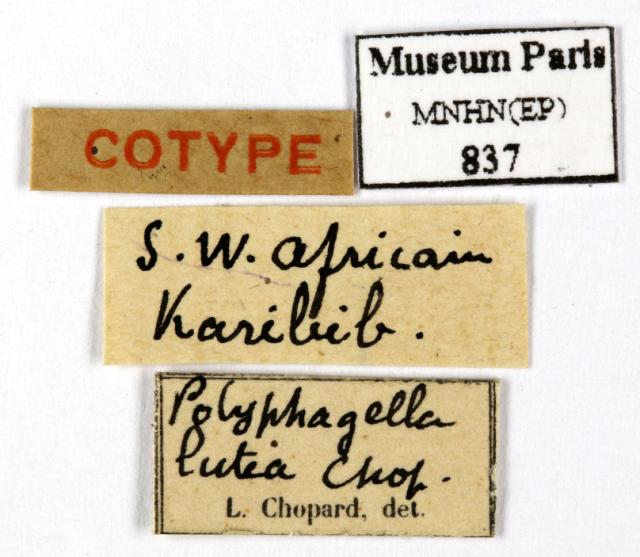 Museum Paris
MNHN(EP)
837
COTYPE
S.W. africain
Karibib.
Polyphagella
lutea Chop.
L. Chopard, det.